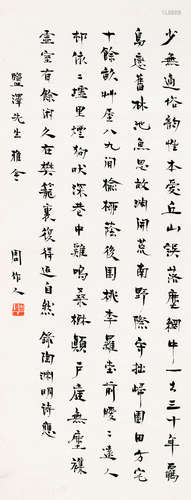 少無適俗韵性本愛丘山誤落塵網中一去三十年羈
鳥戀舊林池魚思故淵開荒南野際守拙歸園田方宅
十餘畝艸屋八九間榆柳蔭後園桃李羅堂前曖〻遠人
邨依〻墟里煙狗吠深巷中雞鳴桑樹顛戶庭無塵襍
虛室有餘閒久在樊籠裏復得返自然 錄陶淵明詩應
鹽澤先生雅令 周作人